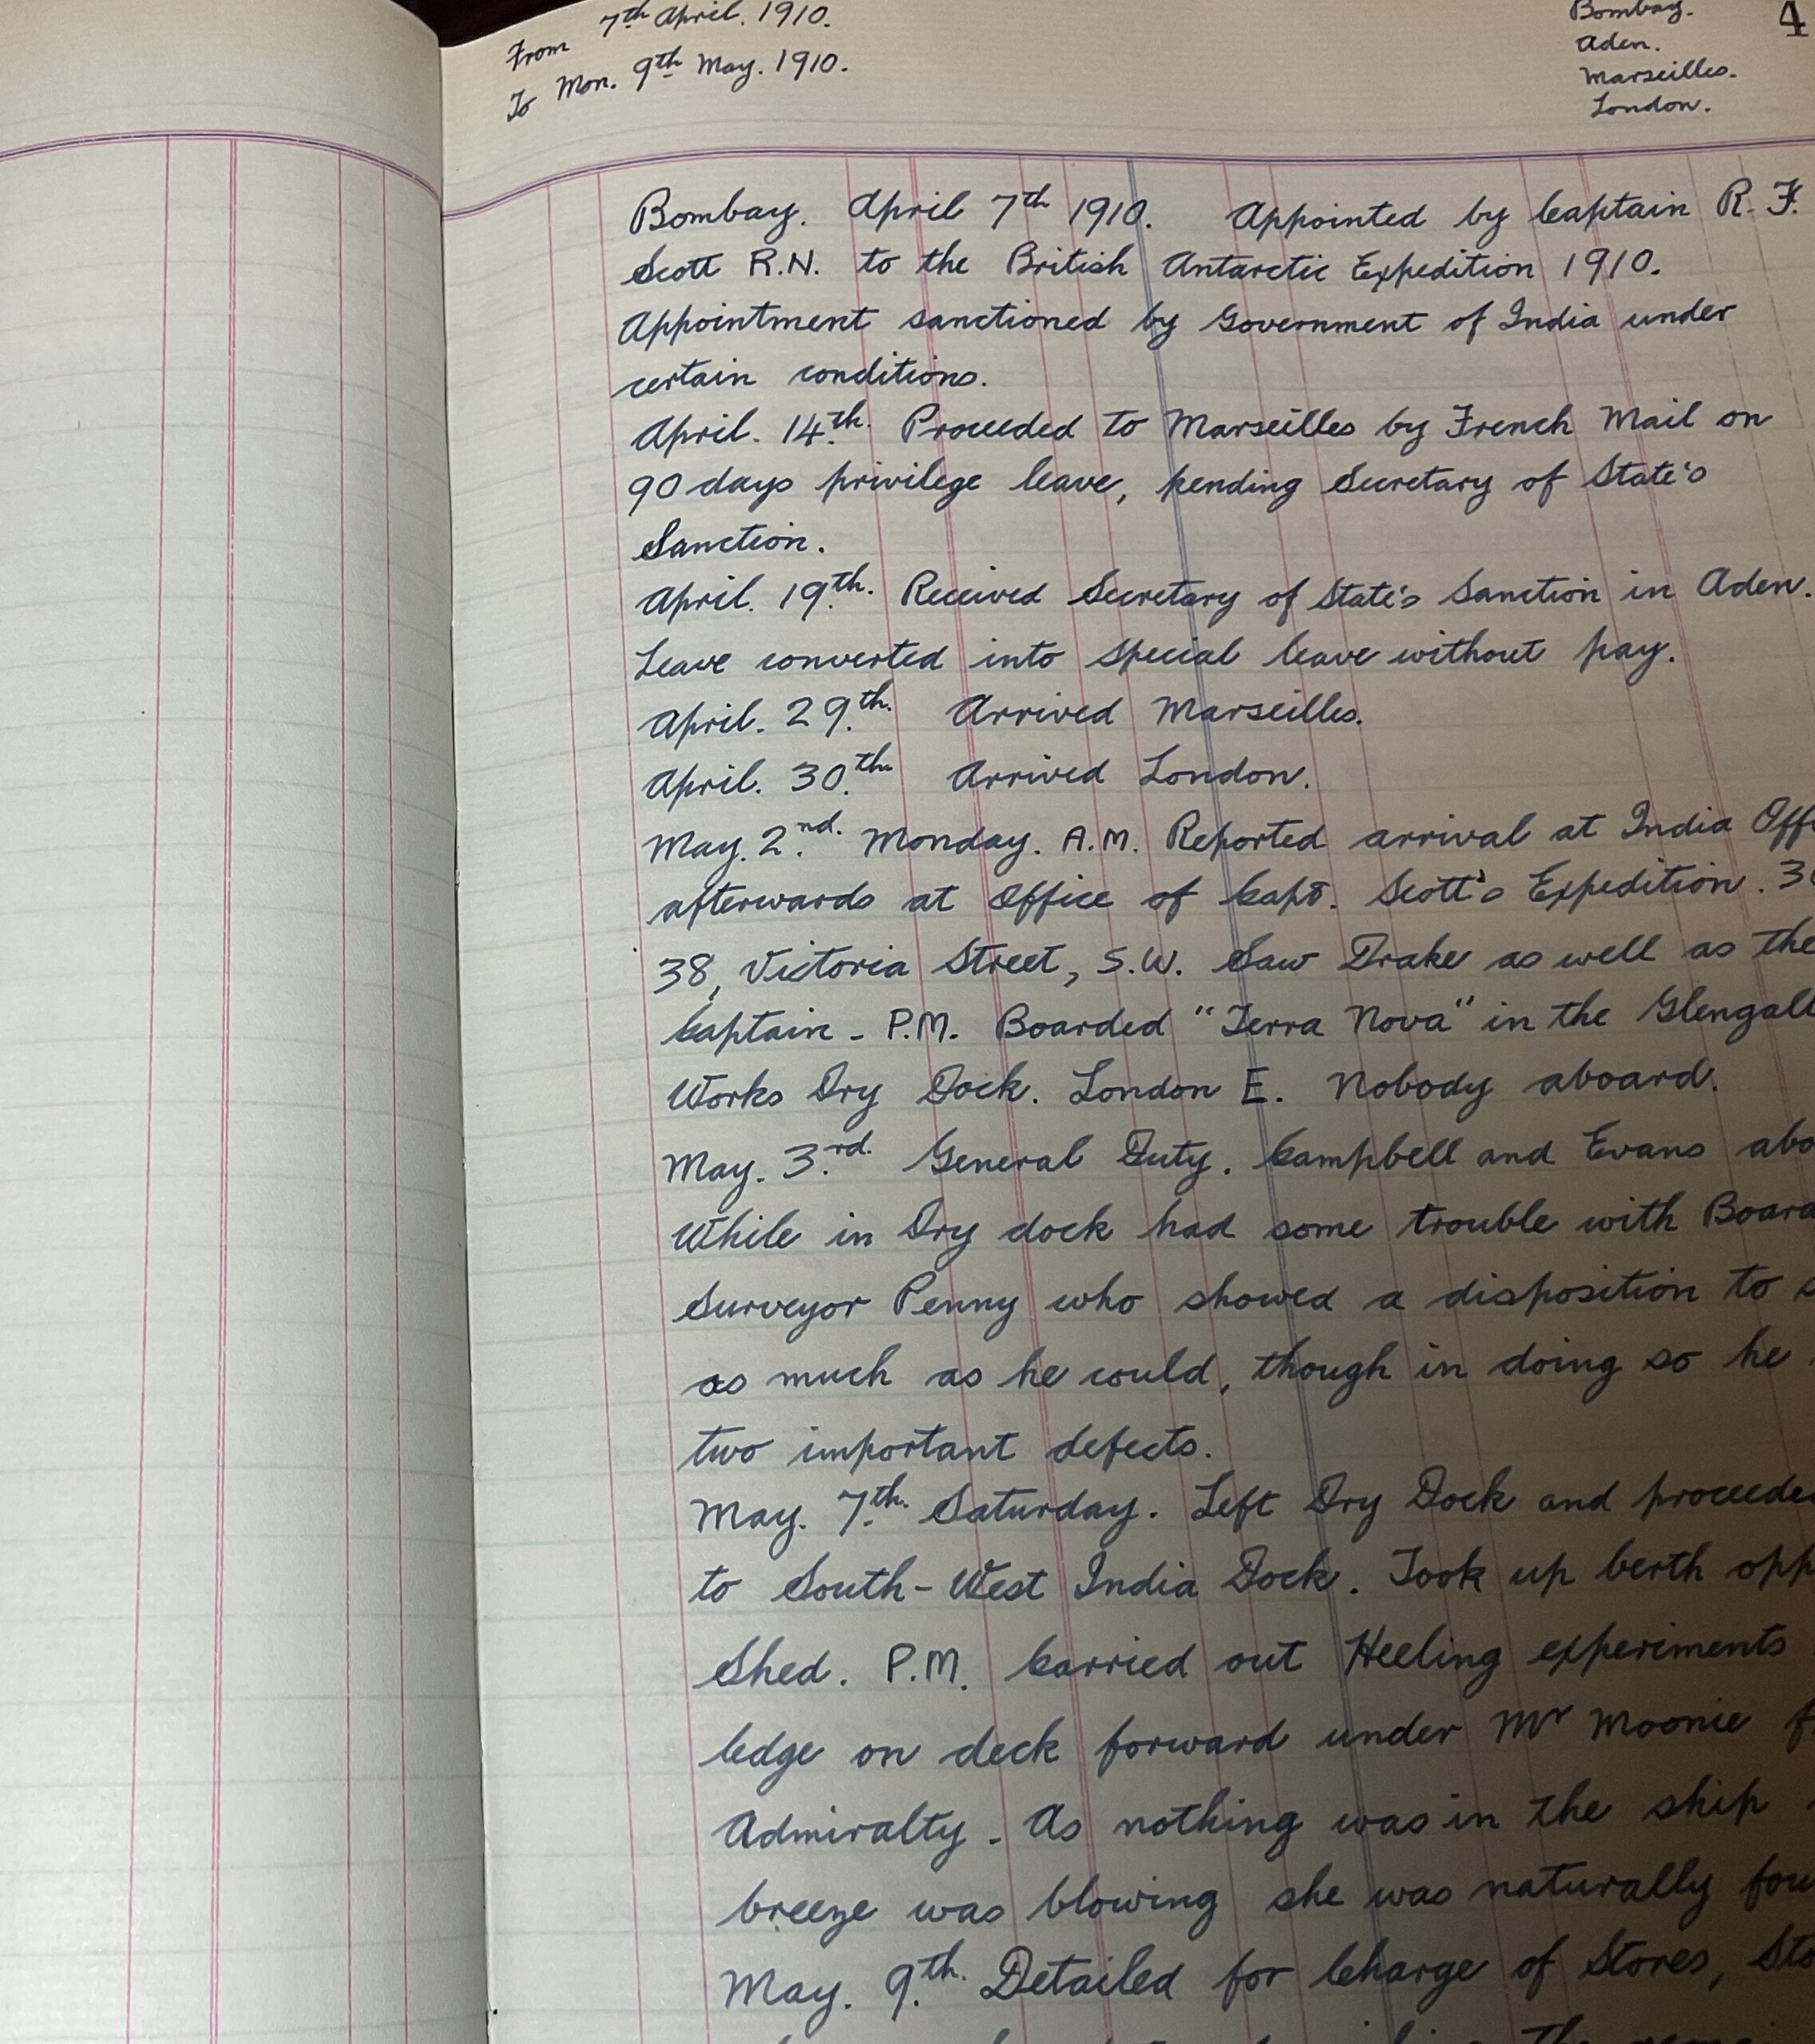 From 7th April. 1910.
To Mon. 9th May. 1910.
Bombay.
Aden.
Marseilles.
London.
4
Bombay. April 7th 1910. Appointed by Captain R. F.
Scott R.N. to the British Antarctic Expedition 1910.
Appointment sanctioned by Government of India under
certain conditions.
April. 14th. Proceeded to Marseilles by French Mail on
90 days privilege leave, pending Secretary of State's
Sanction.
April. 19th. Received Secretary of State's Sanction in Aden.
Leave converted into special leave without pay.
April. 29th. Arrived Marseilles.
April. 30th. Arrived London.
May. 2nd. Monday. A.M. Reported arrival at India Off
afterwards at Office of Capt. Scott's Expedition. 3
38, Victoria Street, S.W. Saw Drake as well as the
Captain - P.M. Boarded "Terra Nova" in the Glengall
Works Dry Dock. London E. Nobody aboard.
May. 3rd. General Duty. Campbell and Evans abo
While in Dry dock had some trouble with Board
Surveyor Penny who showed a disposition to
as much as he could, though in doing so he
two important defects.
May. 7th. Saturday. Left Dry Dock and proceede
to South-West India Dock. Took up berth opp
Shed. P.M. Carried out Heeling experiments
ledge on deck forward under Mr Moonie f
Admiralty - As nothing was in the ship
breeze was blowing she was naturally fou
May. 9th. Detailed for Charge of Stores, Sto